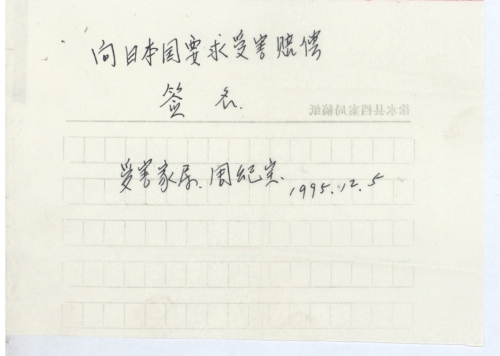 向日本国要求受害赔偿
签名.
徐水县档案局稿纸
受害家属.周纪宗.1995.12.5